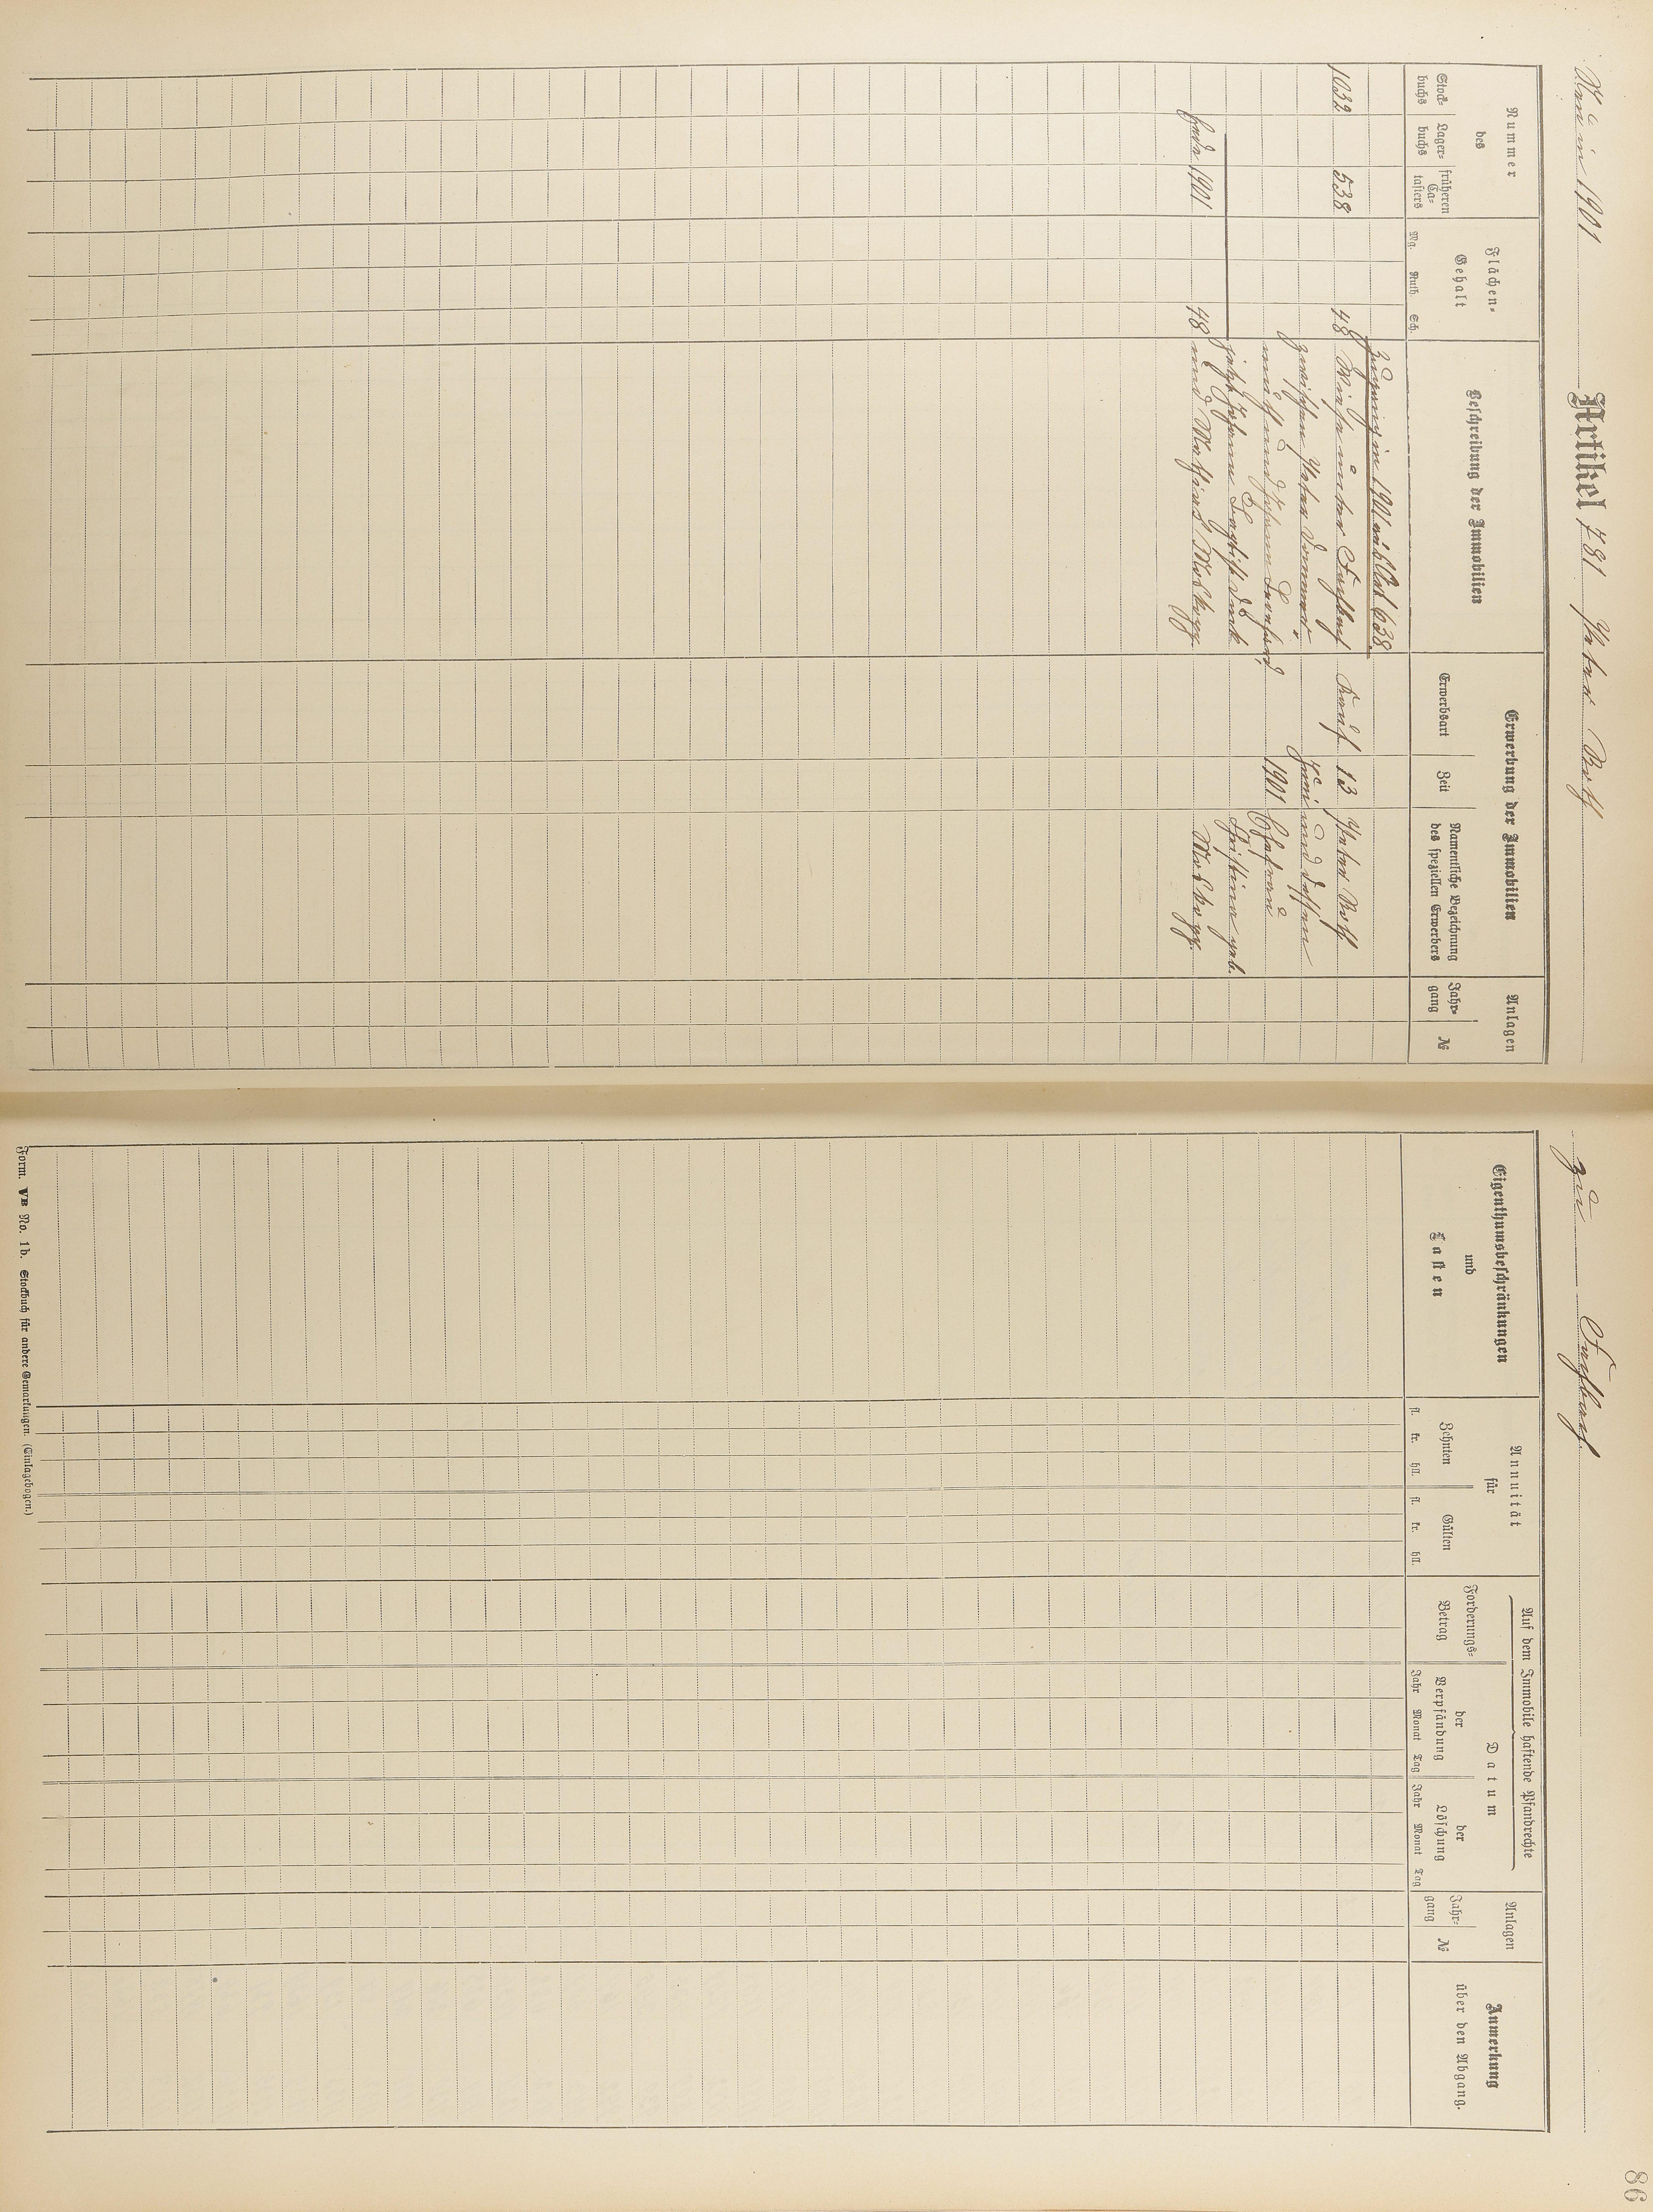 Neu in 1901 Artikel 781 Peter Roth
Nummer
des
Stock-
buchs
Lager-
buchs
früheren
Ca-
tasters
Flächen-
Gehalt
Mg. Ruth. Sch.
Beschreibung der Immobilien
Erwerbung der Immobilien
Erwerbsart
Zeit
Namentliche Bezeichnung
des speziellen Erwerbers
Anlagen
Jahr-
gang
№
in 1901 638.
1032 538 48 Wiese Kauf 13 Peter Roth
zwischen Peter Juni und dessen
und Johann 1901 Ehefrau
jetzt Johann Christina geb.
Ende 1901 48 und Mathias
zu
Eigenthumsbeschränkungen
und
Lasten
Annuität
für
Zehnten
fl. kr. hll.
Gülten
fl. kr. hll.
Auf dem Immobile haftende Pfandrechte
Forderungs-
Betrag
Datum
der
Verpfändung
Jahr Monat Tag
der
Löschung
Jahr Monat Tag
Anlagen
Jahr-
gang
№
Anmerkung
über den Abgang.
Form. VB No. 1b. Stockbuch für andere Gemarkungen. (Einlagebogen.)
86